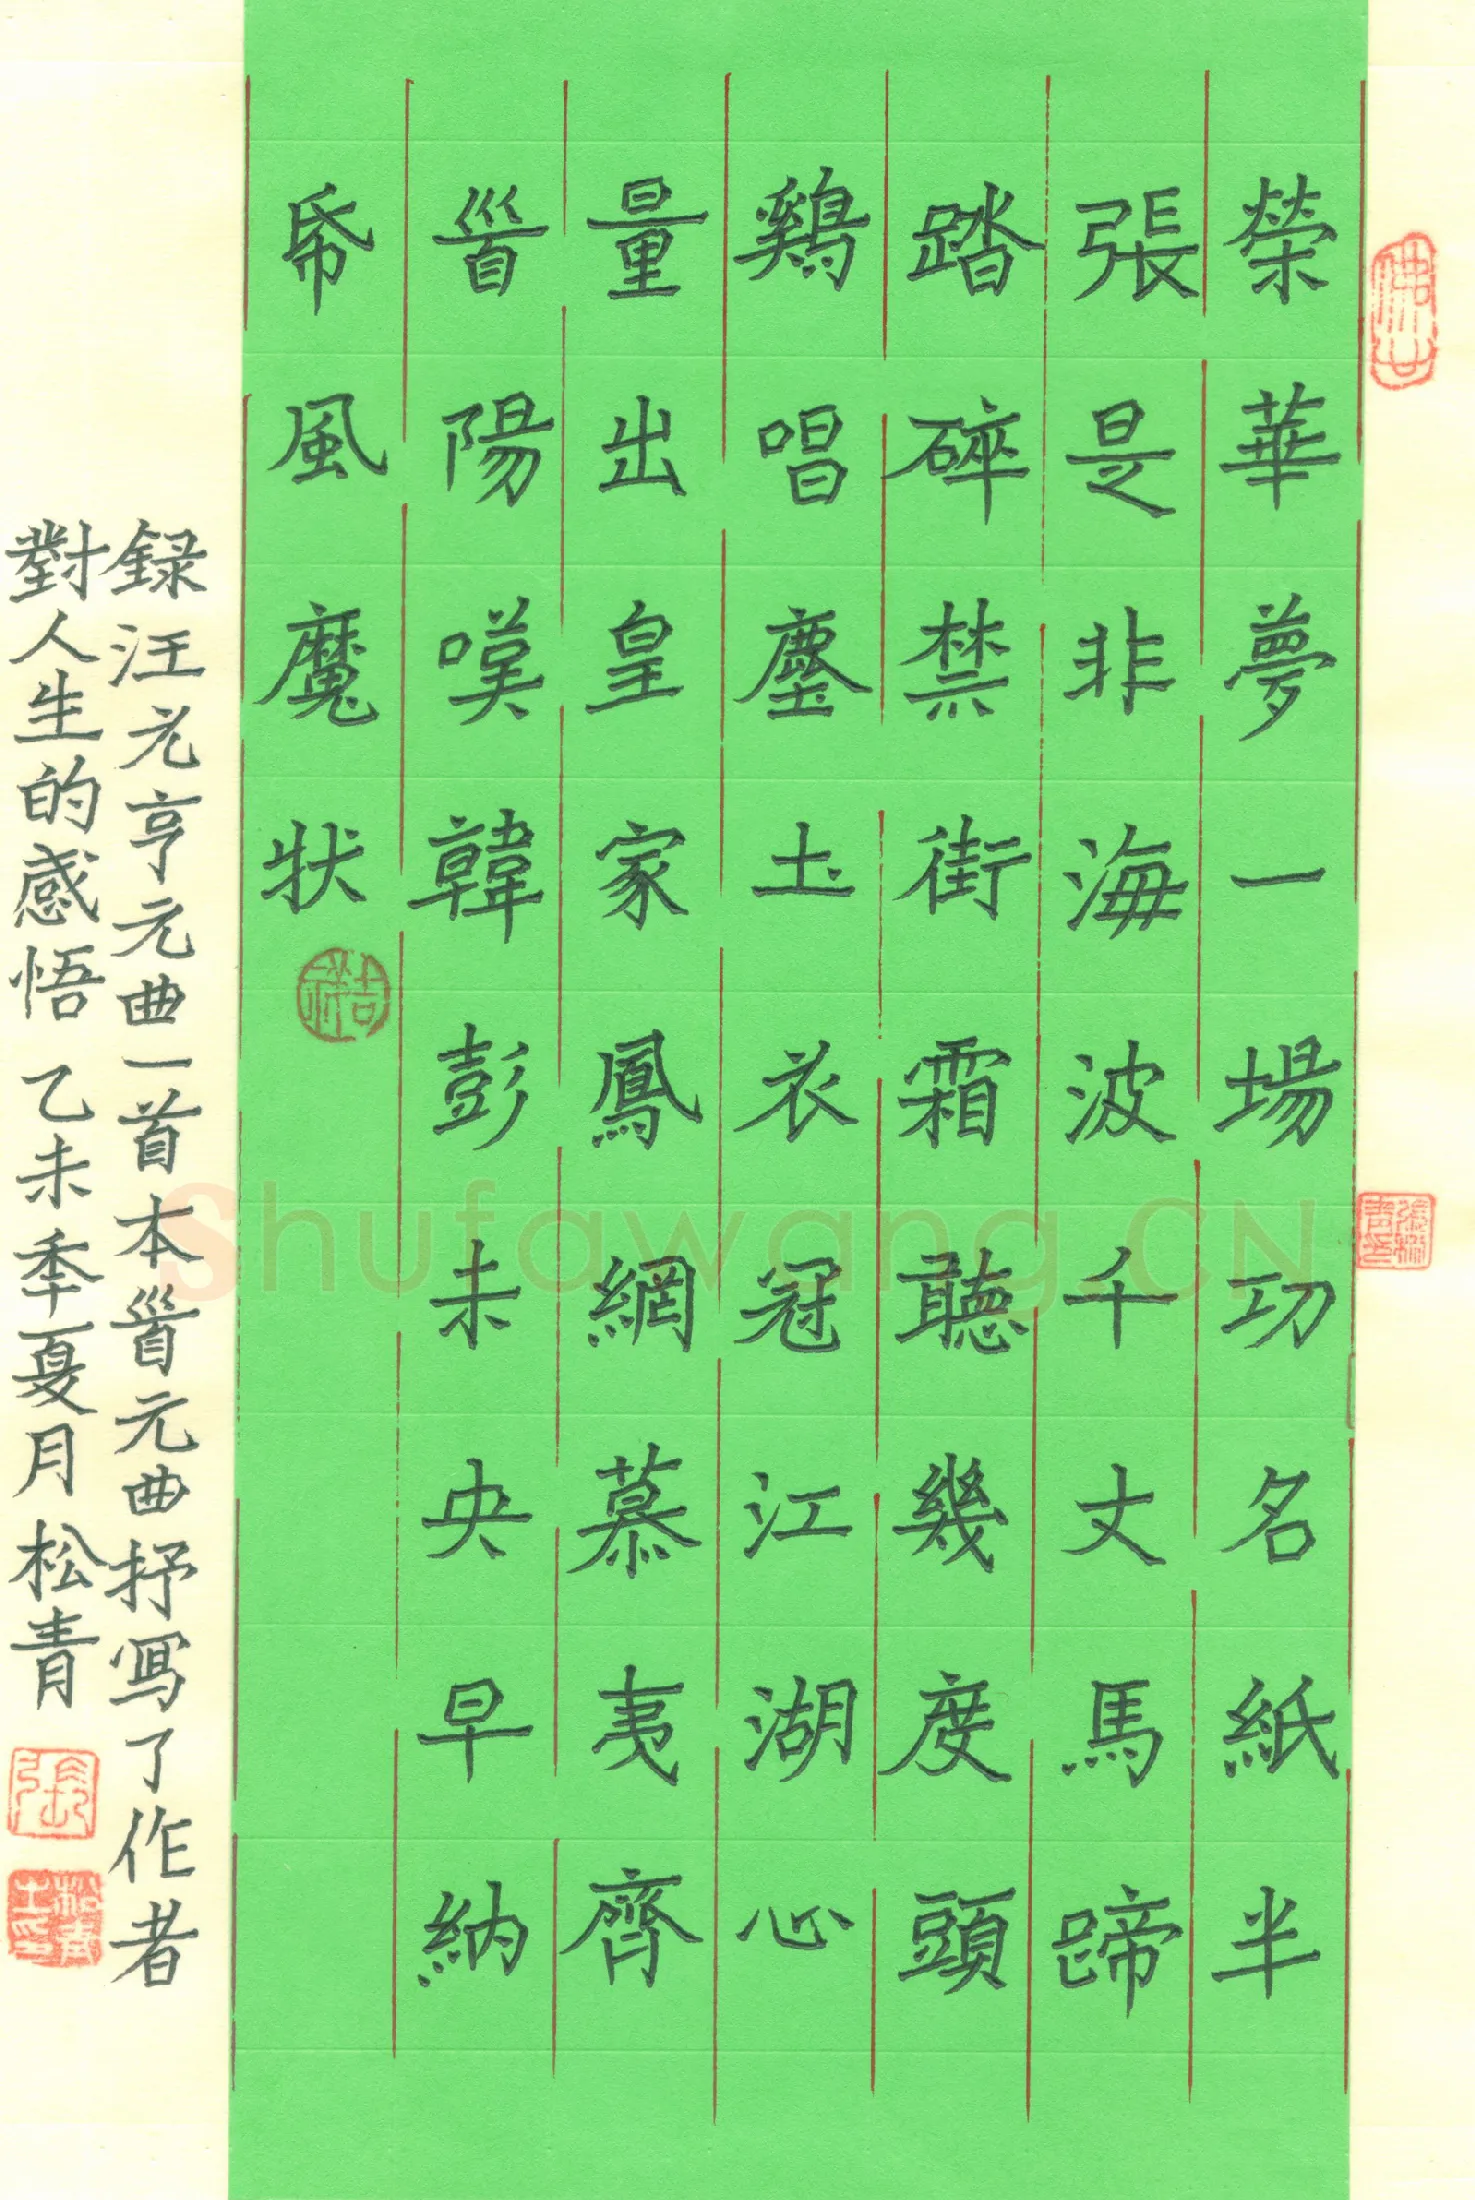 佛山
榮華夢一場功名紙半
張是非海波千丈馬蹄
踏碎禁街霜聽幾度頭
鷄唱塵土衣冠江湖心
量出皇家鳳網慕夷齊
首陽嘆韓彭未央早納
帋風魔狀
吉祥
録汪元亨元曲一首本首元曲抒寫了作者
對人生的感悟 乙未季夏月松青
張
Shufawang.CN